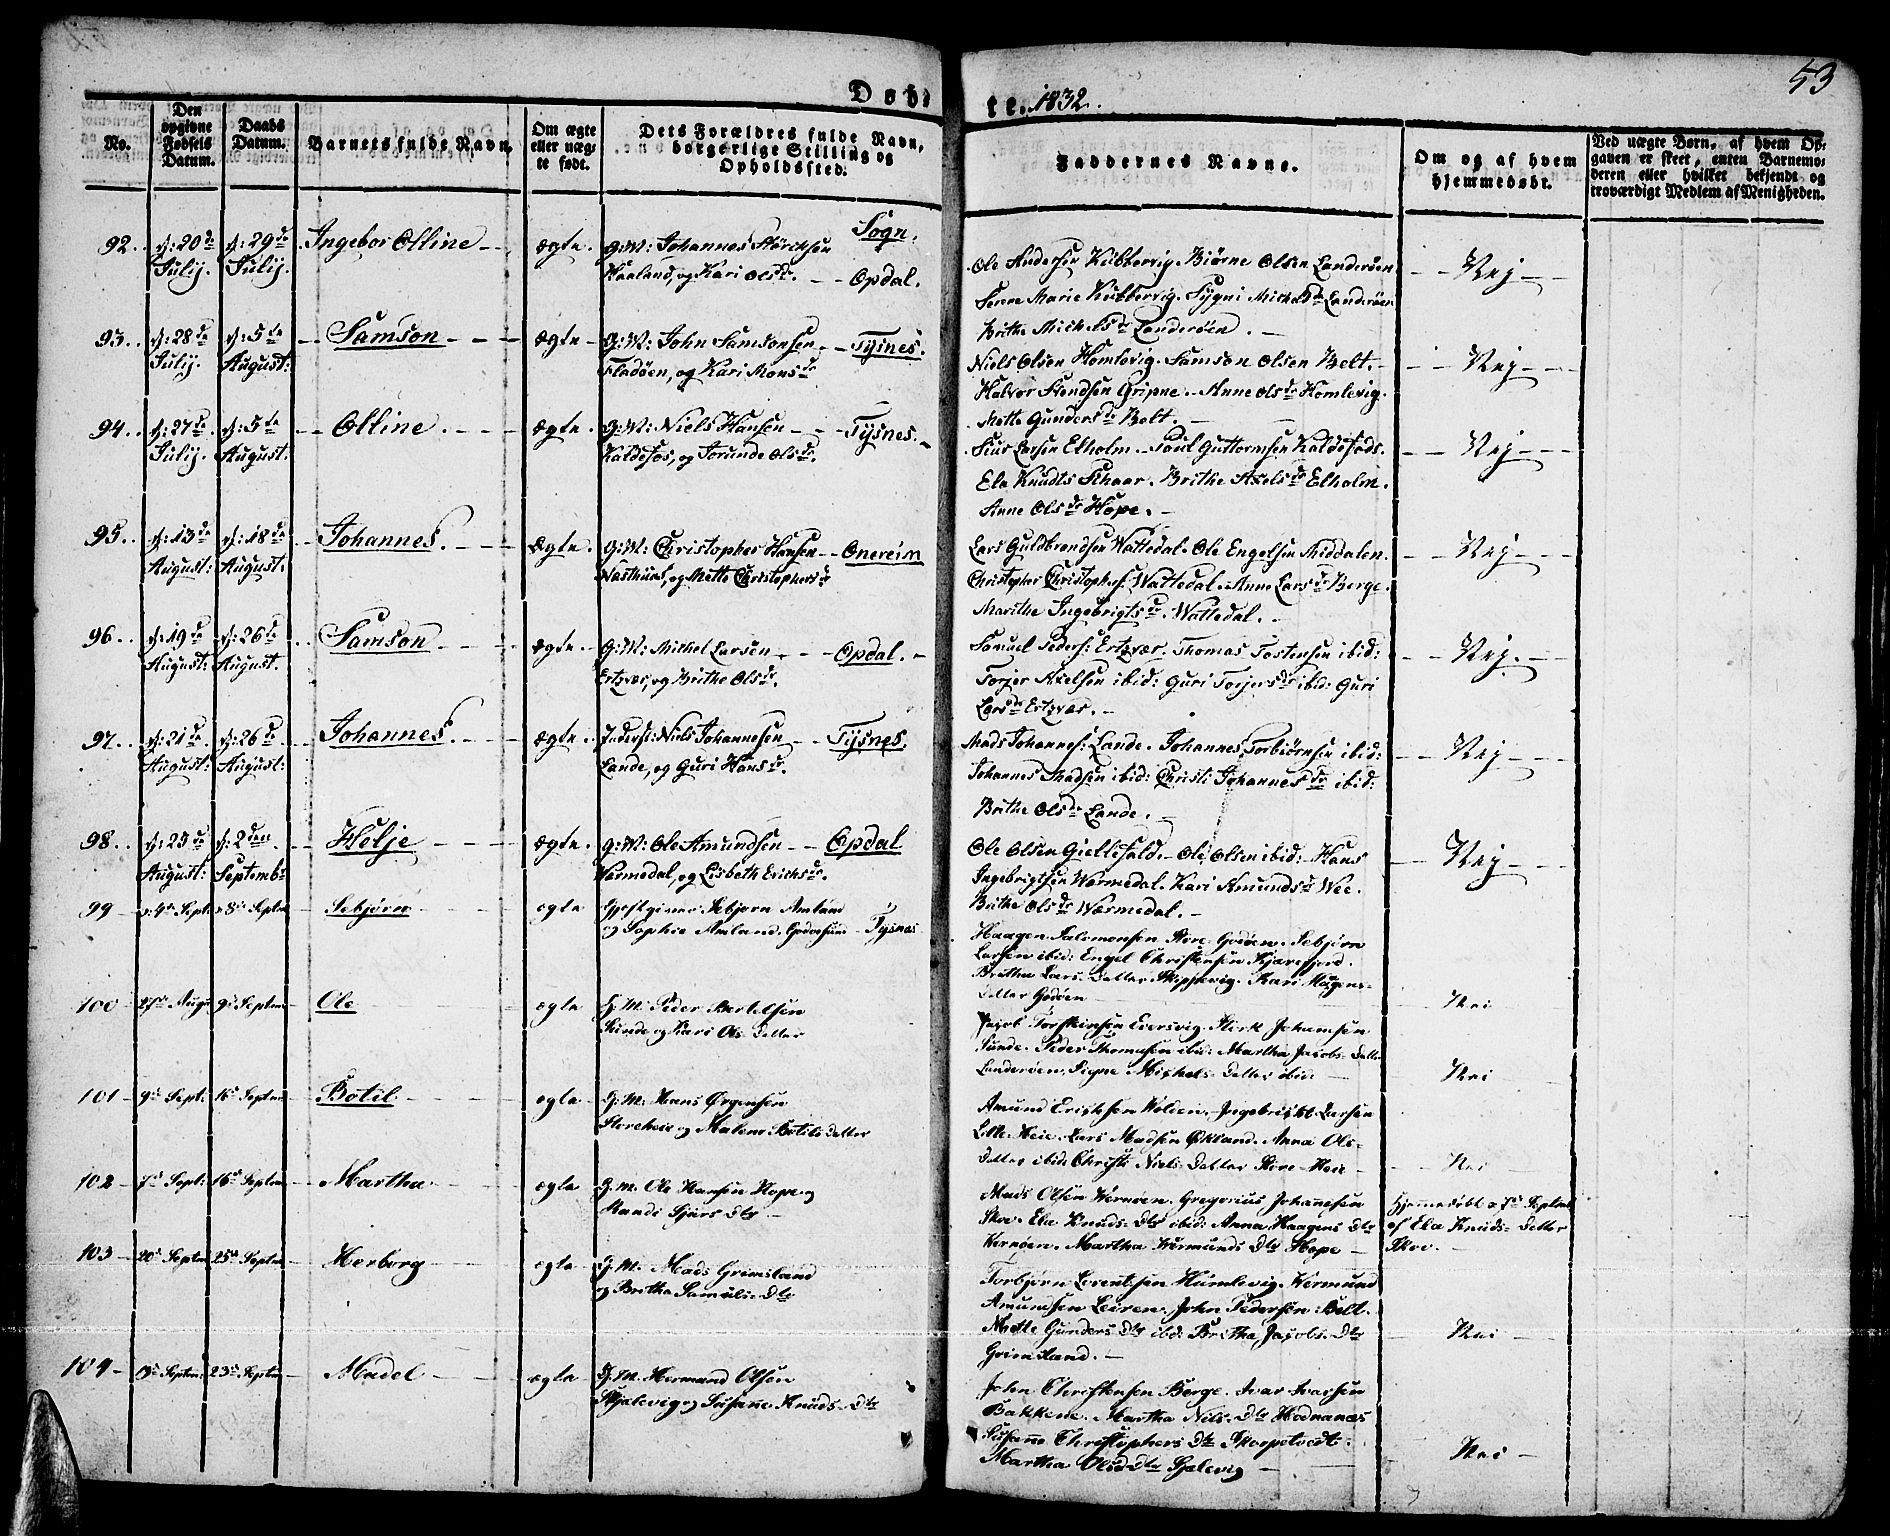 53
Døbte. 1832.
No.
Den opgivne Fødsels Datum.
Daabs Datum.
Barnets fulde Navn.
Om ægte eller uægte født.
Dets Forældres fulde Navn, borgerlige Stilling og Opholdssted.
Faddernes Navne.
Om og af hvem hjemmedøbt.
Ved uægte Børn, af hvem Opgaven er skeet, enten Barnemoderen eller hvilket bekjendt og troværdigt Medlem af Menigheden.
Sogn.
92. d: 20de d: 29de Ingebor Olline ægte. G:M: Johannes
Julij. Julij. Haaland, og Kari Olsdr. Opdal.
Ole Andersen Kubbervig. Biørne Olsen Landerøen
Marie Kubbervig. Sygni Michelsdr Landerøen
Brithe Michelsdr Landerøen.
Nej
93. d: 28de d: 5te Samson ægte G:M: John Samsonsen Tysnes.
Julij. August: Fladøen, og Kari Monsdr
Niels Olsen Homlevig. Samson Olsen Belt.
Halvor Gripne. Anne Olsdr Homlevig.
Mette Gundersdr Belt.
Nej
94. d: 27de d: 5te Olline. ægte. G:M: Niels Hansen Tysnes.
Julij. August: og Jorunde Olsdr.
Siur Larsen Elholm. Poul Guttormsen
Ela Knudts Schaar. Brithe Axelsdr Elholm.
Anne Olsdr Hope.
Nej
95. d: 13de d: 18de Johannes. Ægte. G:M: Christopher Hansen Onereim
August: August. og Mette Christophersdr
Lars Guldbrandsen Wattedal. Ole Engelsen Middalen.
Christopher Christophs: Wattedal. Anne Larsdr Berge.
Marithe Ingebrigtsdr. Wattedal.
Nej
96. d: 19de d: 26de Samson ægte. G:M: Michel Larsen Opdal.
August: August. Ertzvær, og Brithe Olsdr.
Samuel Peders: Ertzvær. Thomas Tostensen ibid:
Torjer Axelsen ibid: Guri Torjersdr ibid: Guri
Larsdr Ertzvær.
Nej.
97. d: 21de d: 26de Johannes. ægte. Inderst: Niels Johannesen Tysnes.
August: August: Lande, og Guri Hansdr.
Mads Johannes: Lande. Johannes Torbiørnsen ibid:
Johannes Madsen ibid: Christi Johannesdr ibid:
Brithe Olsdr Lande.
Nej
98. d: 25de d: 2den Helje ægte. G:M: Ole Amundsen Opdal
August: Septembr Wærmedal, og Lisbeth Erichsdr.
Ole Olsen Gjellefald. Ole Olsen ibid: Hans
Ingebrigtsen Wærmedal. Kari Amundsdr Wee.
Brithe Olsdr Wærmedal.
Nej
99 4de Sept. 8de Septm Sebjørn ægte Gjestgiver Sebjørn Amland
og Sophie Amland. Godøesund Tysnes
Haagen Salomonsen Store Godøen. Sebjørn
Larsen ibid: Engel Christensen
Britha Lars-Datter Skippevig. Kari Magens-
Datter Godøen
Nei
100 27de Augu 9de Septm Ole ægte G. M. Peder Bertelsen
og Kari Ols-Datter
Jacob Torstensen Eversvig.
Sunde. Peder Thomasen ibid: Martha Jacobs-Datter
Landerøen. Signe Michels-Datter ibid:
Nei
101 9de Sept: 16de Septm Botil ægte G. M. Hans Ørgensen
Storeheie og Malene Botels datter
Amund Erichsen Wolden. Ingebrigt Larsen
Litle-Heie. Lars Madsen Økland. Anna Ols-
Datter ibid: Christi Niels-Datter Store-Heie
Nei
102 7de Sept: 16de Septm Martha ægte G. M. Ole Hansen Hope og
Randi Sjurs Dtr
Mads Olsen Wernøen. Gregorius Johannesen
Skoe. Ela Knuds-Dtr ibid: Anna Haagens Dtr
Wernøen. Martha Wermunds Dtr Hope
Hjemmedøbt d 7de Septm
af Ela Knuds-Datter
Skoe.
103 20de Septm 25de Septm Herborg ægte G. M. Mads Grimsland
og Britha Samuels-Dtr
Torbjørn Lorentzsen Humlevig. Wermund
Amundsen Leiren. John Pedersen Belt.
Mette Gunders Dtr ibid: Britha Jacobs-Dtr
Grimsland.
Nei
104 19de Septm: 23de Septm Madel ægte G. M. Wermund Olsen
Skjalevig og Susane Knuds-Dtr
John Christensen Berge. Ivar Ivarsen
Bakkene. Martha Nils-Dtr Hodnanæs
Susanne Christophers Dtr Skorpetvedt.
Martha Dtr Sjalevig
Nei